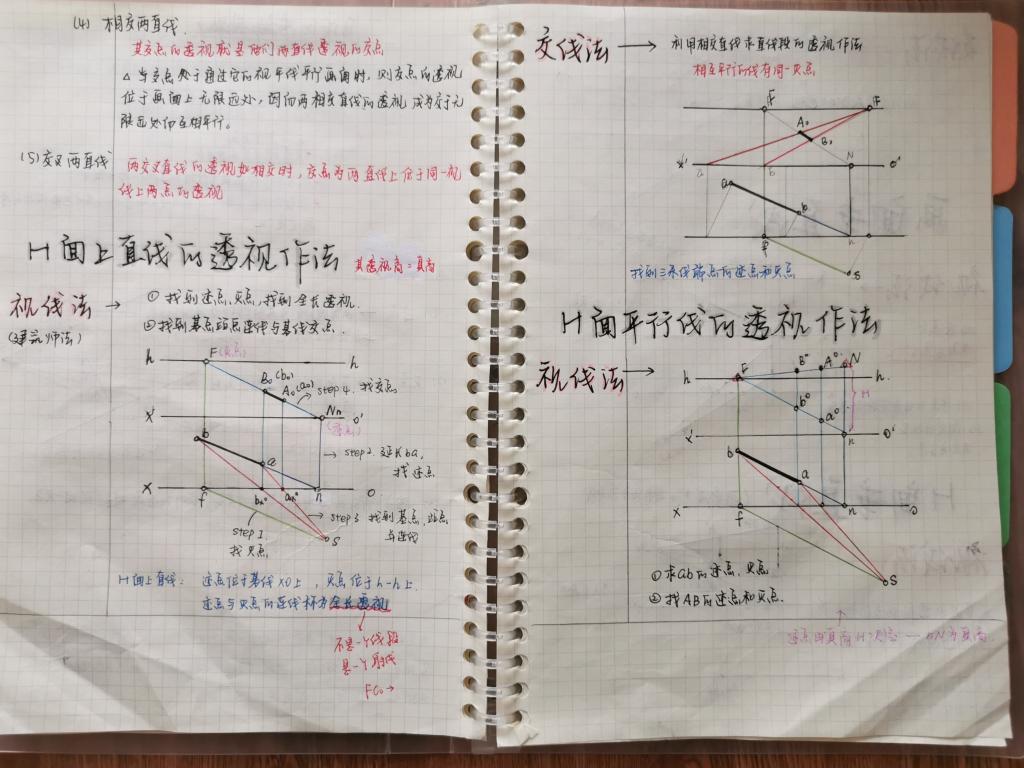 (4) 相交两直线.
其交点的透视就是他们两直线透视的交点
△ 当交点处于通过它的视平线平行画面时,则交点的透视
位于画面上无限远处,因而两相交直线的透视,成为交于无
限远处而互相平行。
(5) 交叉两直线
两交叉直线的透视如相交时,交点为两直线上位于同一视
线上两点的透视
H面上直线的透视作法
其透视高=真高
视线法 →
(建筑师法)
① 找到迹点、灭点,找到全长透视.
② 找到基点站点连线与基线交点.
h F (灭点) h
B₀(b₀)
A₀(a₀) step 4. 找交点
X' Nn O'
(迹点)
b
step 2. 延长ba,
找迹点
a
X f n O
step 1.
找灭点
step 3 找到基点,站点
与连线
S
H面上直线: 迹点位于基线XO上,灭点位于h-h上.
迹点与灭点的连线称为全长透视
不是一个线段
是一个射线
F∞→
交线法 → 利用相交直线求直线段的透视作法
相互平行的线有同一灭点
F F
A₀
B₀
X' a b N O'
a
b
f n
S
找到三条线端点的迹点和灭点
H面平行线的透视作法
视线法 →
h F B° A° N h.
H
b° a°
X' n O'
b
a
X f n O
S
① 求ab的迹点、灭点
② 找AB的迹点和灭点.
迹点由真高H决定 — nN为真高